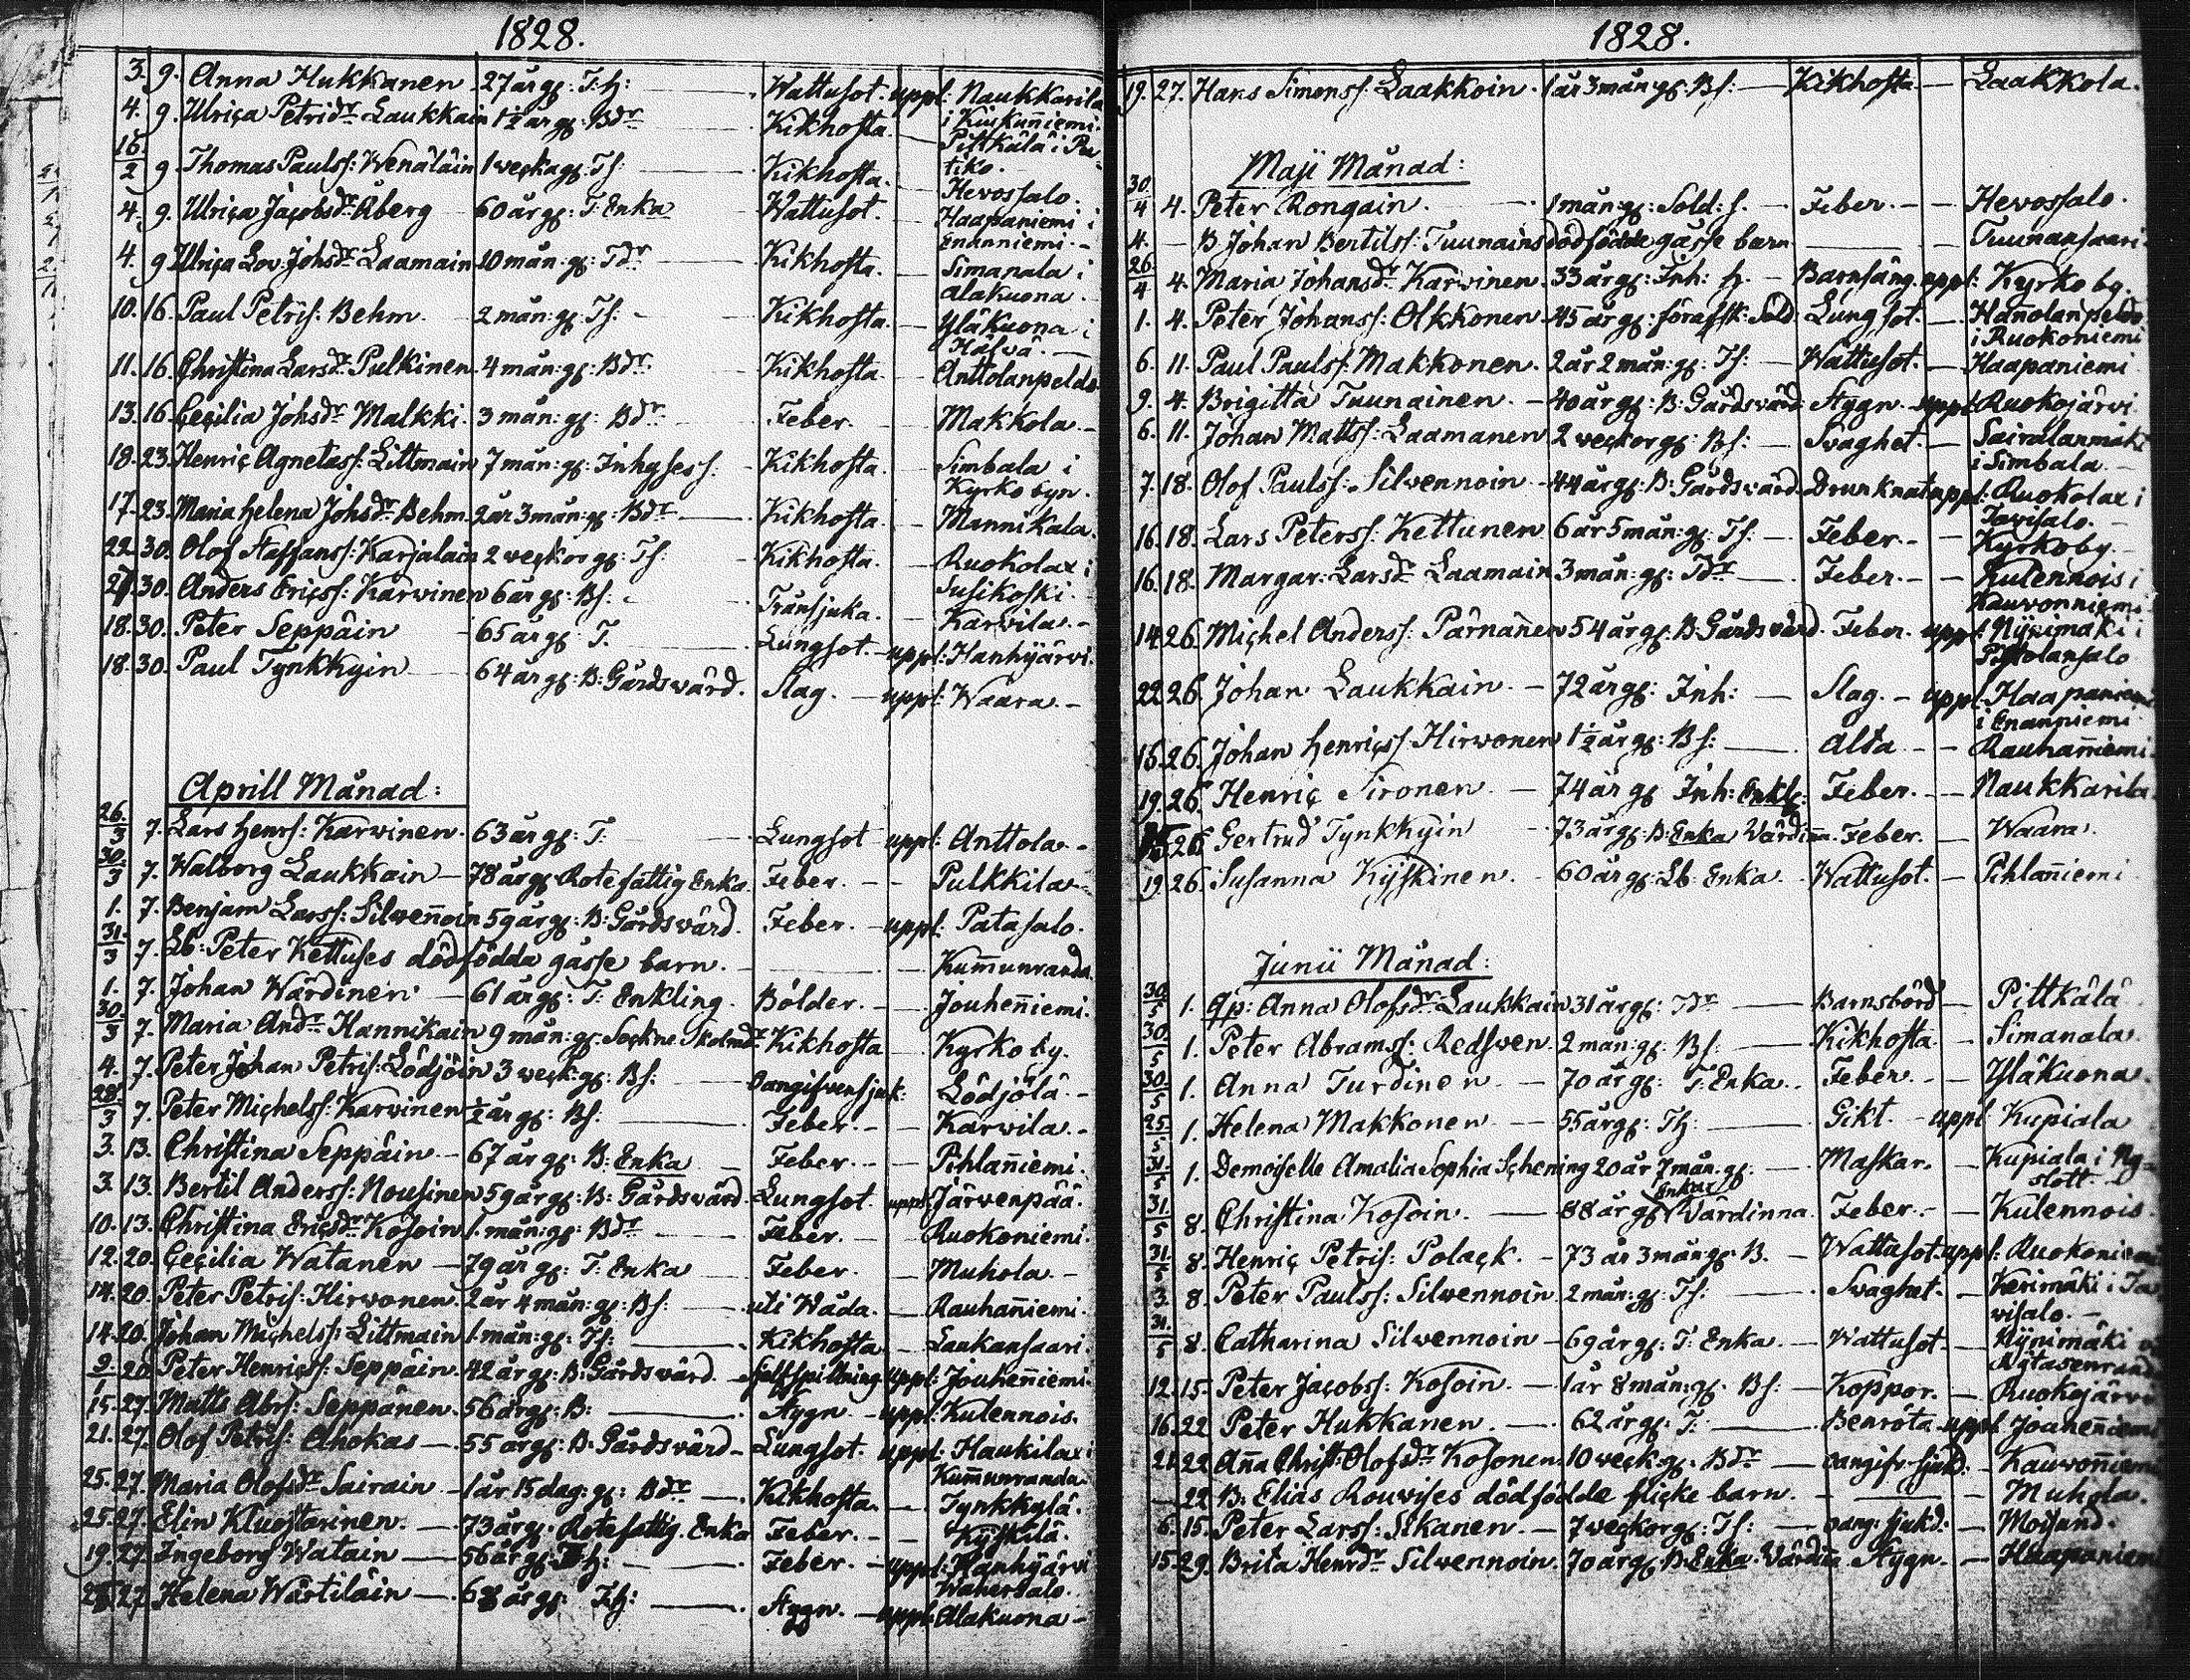 1828.
3. 9. Anna Hukkanen 27 år gl: T.h: Wattusot. uppl: Naukkarila
i Kiukunniemi.
4. 9. Ulrica Petridr Laukkain 1½ år gl: Bdr Kikhosta. Pittkälä i Pu-
tiko.
16/2 9 Thomas Paulss: Wenäläin 1 wecka gl: Ts: Kikhosta. Hevossalo.
4. 9. Ulrica Jacobsdr Åberg 60 år gl: T: Enka Wattusot. Haapaniemi i
Enanniemi.
4. 9 Ulrica Lov: Johsdr Laamain 10 mån: gl: Tdr Kikhosta. Simanala i
Alakuona.
10. 16. Paul Petris: Behm. 2 mån: gl: Ts: Kikhosta. Yläkuona i
Hälvä.
11. 16. Christina Larsdr Pulkinen 4 mån: gl: Bdr Kikhosta Anttolanpeldo
13. 16. Cecilia Johsdr Malkki. 3 mån: gl: Bdr Feber. Makkola
18. 23. Henric Agnetass: Littmain 7 mån: gl: Inhyses s. Kikhosta. Simbala i
Kyrko byn.
17. 23. Maria Helena Johsdr Behm. 2 år 3 mån: gl: Bdr Kikhosta. Mannikala.
22. 30. Olof Staffanss: Karjalain 2 weckor gl: Ts: Kikhosta. Ruokolax i
Susikoski.
30. Anders Ericss: Karvinen 6 år gl: Bs: Trånsjuka. Karvila.
18. 30. Peter Seppäin 65 år gl: T. Lungsot. uppl: Hanhijärvi.
18. 30. Paul Tynkkyin 64 år gl: B: Gårdsvärd. Slag. uppl: Waara.
Aprill Månad:
26/3 7. Lars Henrs: Karvinen 63 år gl: T: Lungsot uppl: Anttola
30/3 7. Walborg Laukkain 78 år gl: Rotefattig Enka Feber. Pulkkila
1. 7. Benjam Larss: Silwennoin 59 år gl: B: Gårdsvärd. Feber. uppl: Patasalo.
31/3 7. Lb: Peter Kettuses dödfödda gåsse barn. Kummunranda.
1. 7. Johan Wärdinen 61 år gl: T: Enkling. Bölder. Jouhenniemi.
30/3 7. Maria Andr Hannikain 9 mån: gl: Sockne Skolmdr Kikhosta Kyrko by.
4. 7. Peter Johan Petris: Lödjöin 3 weck: gl: Bs: oangifven sjuk: Lödjölä.
28/3 7. Peter Michelss: Karvinen ½ år gl: Bs: Feber. Karvila.
3. 13. Christina Seppäin 67 år gl: B: Enka Feber. Pihlanniemi.
3. 13. Bertil Anderss: Nousinen 59 år gl: B: Gårdsvärd. Lungsot. uppl: Järvenpää.
10. 13. Christina Ericsdr Kosoin 1. mån: gl: Bdr Feber. Ruokoniemi.
12. 20. Cecilia Watanen 79 år gl: T: Enka Feber. Muhola.
14. 20. Peter Petris: Hirvonen. 2 år 4 mån: gl: Bs: uti Wåda. Rauhanniemi.
14. 20. Johan Michelss: Littmain 1. mån: gl: Ts: Kikhosta Laukansaari.
20 Peter Henricss: Seppäin 42 år gl: B: Gårdsvärd. Selfspillning uppl: Jouhenniemi.
15. 27. Matts Abrs: Seppänen 56 år gl: B: Stygn. uppl: Kulennois.
21. 27. Olof Petris: Ahokas 55 år gl: B: Gårdsvärd Lungsot. uppl: Haukilax i
Kummunranda
25. 27. Maria Olofsdr Sairain 1 år 15 dag: gl: Bdr Kikhosta. Tynkkylä.
25. 27. Elin Kluostarinen. 73 år gl: Rotefattig Enka Feber. Kyskilä.
19. 27. Ingeborg Watain 56 år gl: Th: Feber. uppl: Hanhijärvi
Wahersalo.
27 Helena Wärtiläin 68 år gl: Th: Stygn. uppl: Alakuona
1828.
19. 27. Hans Simonss: Laakkoin. 1 år 3 mån gl: Bs: Kikhosta Laakkola.
Maji Månad:
30/4 4. Peter Rongain. 1 mån: gl: Sold: s. Feber. Hevossalo.
4. B Johan Bertilss: Tuunains dödfödde gåsse barn Tuunansaari
26/4 4. Maria Johansdr Karvinen. 33 år gl: Inh: h. Barnsäng. uppl: Kyrko by.
1. 4. Peter Johanss: Olkkonen. 45 år gl: förafsk: Sold. Lungsot. Hanolanpeldo
i Ruokoniemi
6. 11. Paul Paulss: Makkonen. 2 år 2 mån: gl: Ts: Wattusot. Haapaniemi
9. 4. Brigitta Tuunainen. 40 år gl: B: Gårdsvärd Stygn. uppl: Ruokojärvi
6. 11. Johan Mattss: Laamanen 2 weckor gl: Bs: Svaghet. Sairalanmäki
i Simbala.
7. 18. Olof Paulss: Silvennoin 44 år gl: B: Gårdsvärd. Drunknat uppl: Ruokolax i
Tavisalo.
16. 18. Lars Peterss: Kettunen 6 år 5 mån: gl: Ts: Feber. Kyrkoby.
16. 18. Margar: Larsdr Laamain 3 mån: gl: Tdr Feber. Kulennois i
Kauvonniemi
14. 26. Michel Anderss: Pärnänen 54 år gl: B: Gårdsvärd. Feber. uppl: Nyrimäki i
Pistolansalo
22. 26. Johan Laukkain. 72 år gl: Inh: Slag. uppl: Haapaniemi
i Enanniemi
15. 26. Johan Henricss Hirvonen 1½ år gl: Bs: Alta Rauhanniemi.
19. 26. Henric Sironen. 74 år gl: Inh: Enkl: Feber. Naukkarila
26 Gertrud Tynkkyin 73 år gl: B: Enka Värdinna. Feber. Waara.
19. 26. Susanna Kyskinen. 60 år gl: Lb: Enka Wattusot. Pihlanniemi
Junii Månad:
30/5 1. Qp: Anna Olofsdr Laukkain 31 år gl: Tdr Barnsbörd Pittkälä
30/5 1. Peter Abramss: Redsven. 2 mån: gl: Bs: Kikhosta. Simanala.
30/5 1. Anna Turdinen 70 år gl: T: Enka. Feber. Yläkuona.
25/5 1. Helena Makkonen 55 år gl: Th: Gikt. uppl Kupiala
31/5 1. Demoiselle Amalia Sophia Schening 20 år 7 mån: gl: Maskar. Kupiala i Ny-
slott.
31/5 8. Christina Kosoin. 88 år gl: Enka Värdinna. Feber. Kulennois.
31/5 8. Henric Petris: Polack. 73 år 3 mån gl: B. Wattusot. uppl: Ruokoniemi
3. 8. Peter Paulss: Silvennoin. 2 mån: gl: Ts: Svaghet. Kerimäki i Ta-
visalo.
31/5 8. Catharina Silvennoin 69 år gl: T: Enka. Wattusot. Nynimäki
Nytasenranda
12. 15. Peter Jacobss: Kosoin. 1 år 8 mån: gl: Bs: Koppor. Ruokojärvi
16. 22 Peter Hukkanen 62 år gl: T: Benröta uppl Jouhenniemi
21. 22. Anna Christ: Olofsdr Kosonen. 10 weck: gl: Bdr oangifv: sjukd: Kauvonniemi
22 B: Elias Rouvises dödfödde flicke barn. Muhola.
6. 15. Peter Larss: Sikanen. 7 weckor gl: Ts: oang: sjukd: Moisund.
15. 29. Brita Henrdr Silvennoin. 70 år gl: B: Enka Värdin Stygn. Haapaniemi